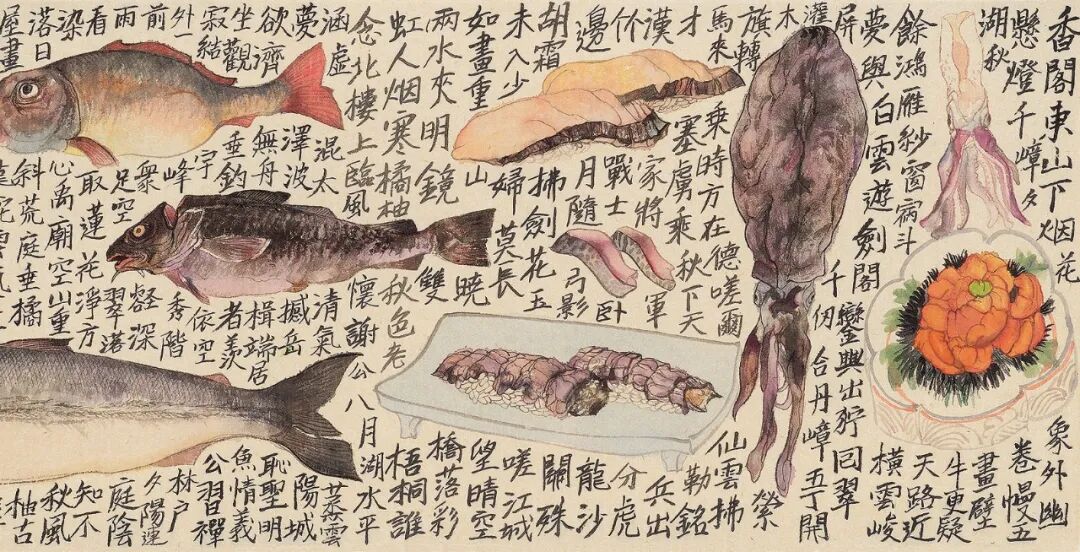 香閣東山下烟花
象外幽
懸燈千嶂夕
卷幔五
湖秋
畫壁
餘鴻雁紗窗宿斗
牛更疑
天路近
夢與白雲遊劍閣
橫雲峻
鑾輿出狩回翠
屏
千仞合丹嶂五丁開
灌木
縈
旗轉
仙雲拂
馬來
乘時方在德嗟爾
勒銘
才
塞虜乘秋下天
兵出
漢
家將軍
分虎
竹
戰士臥
龍沙
邊
月隨弓影
胡霜
拂劍花玉
關殊
未入少
婦莫長
嗟江城
如畫重
山曉
望晴空
兩水夾明鏡
雙
橋落彩
虹人烟寒橘柚
秋色老
梧桐誰
念北樓上臨風
懷謝公八月湖水平
涵虛
混太
清氣
蒸雲
夢
澤波
撼岳
陽城
欲濟
無舟
楫端居
恥聖明
坐觀
垂釣
者羨
魚情義
公習禪
寂結
宇
依空
林户
外一
峰
秀階
前
衆
壑深
夕陽連
雨
足空
翠落
庭陰
看
取蓮花淨方
知不
染
心禹廟空山重
秋風
落日
斜荒庭垂橘
柚古
屋畫